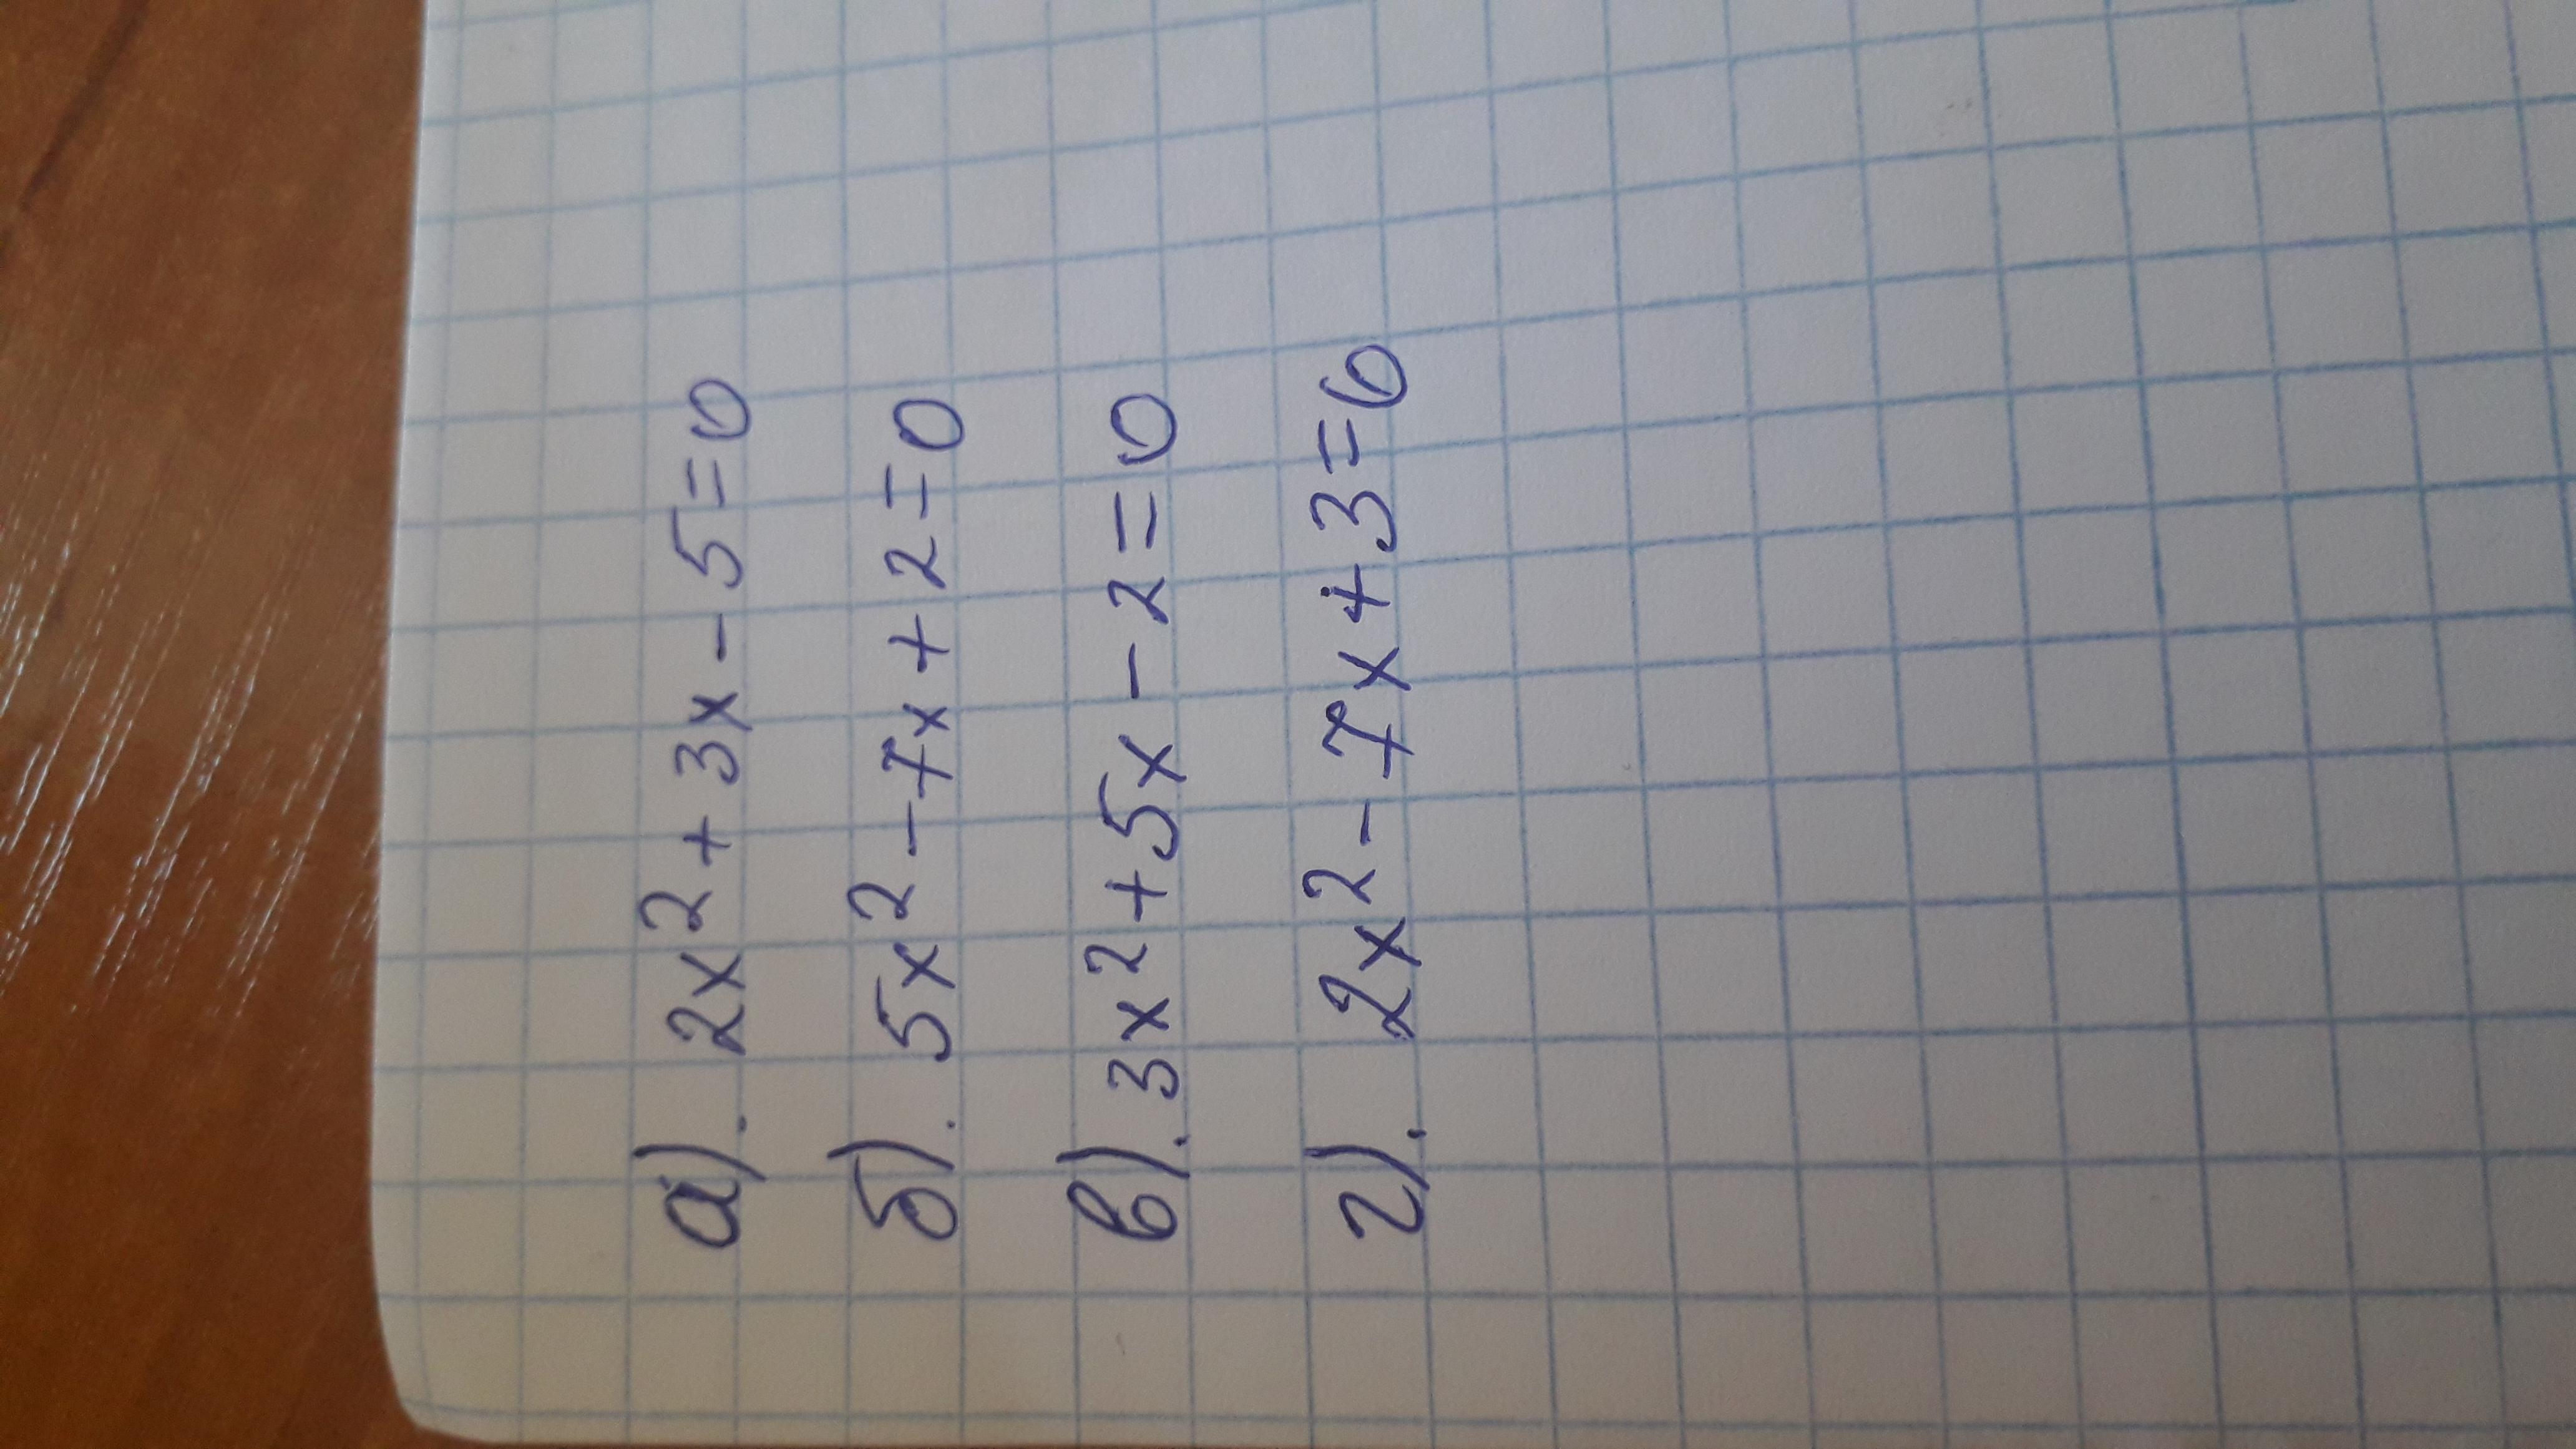 а). 2x²+3x-5=0
б). 5x²-7x+2=0
в). 3x²+5x-2=0
г). 2x²-7x+3=0